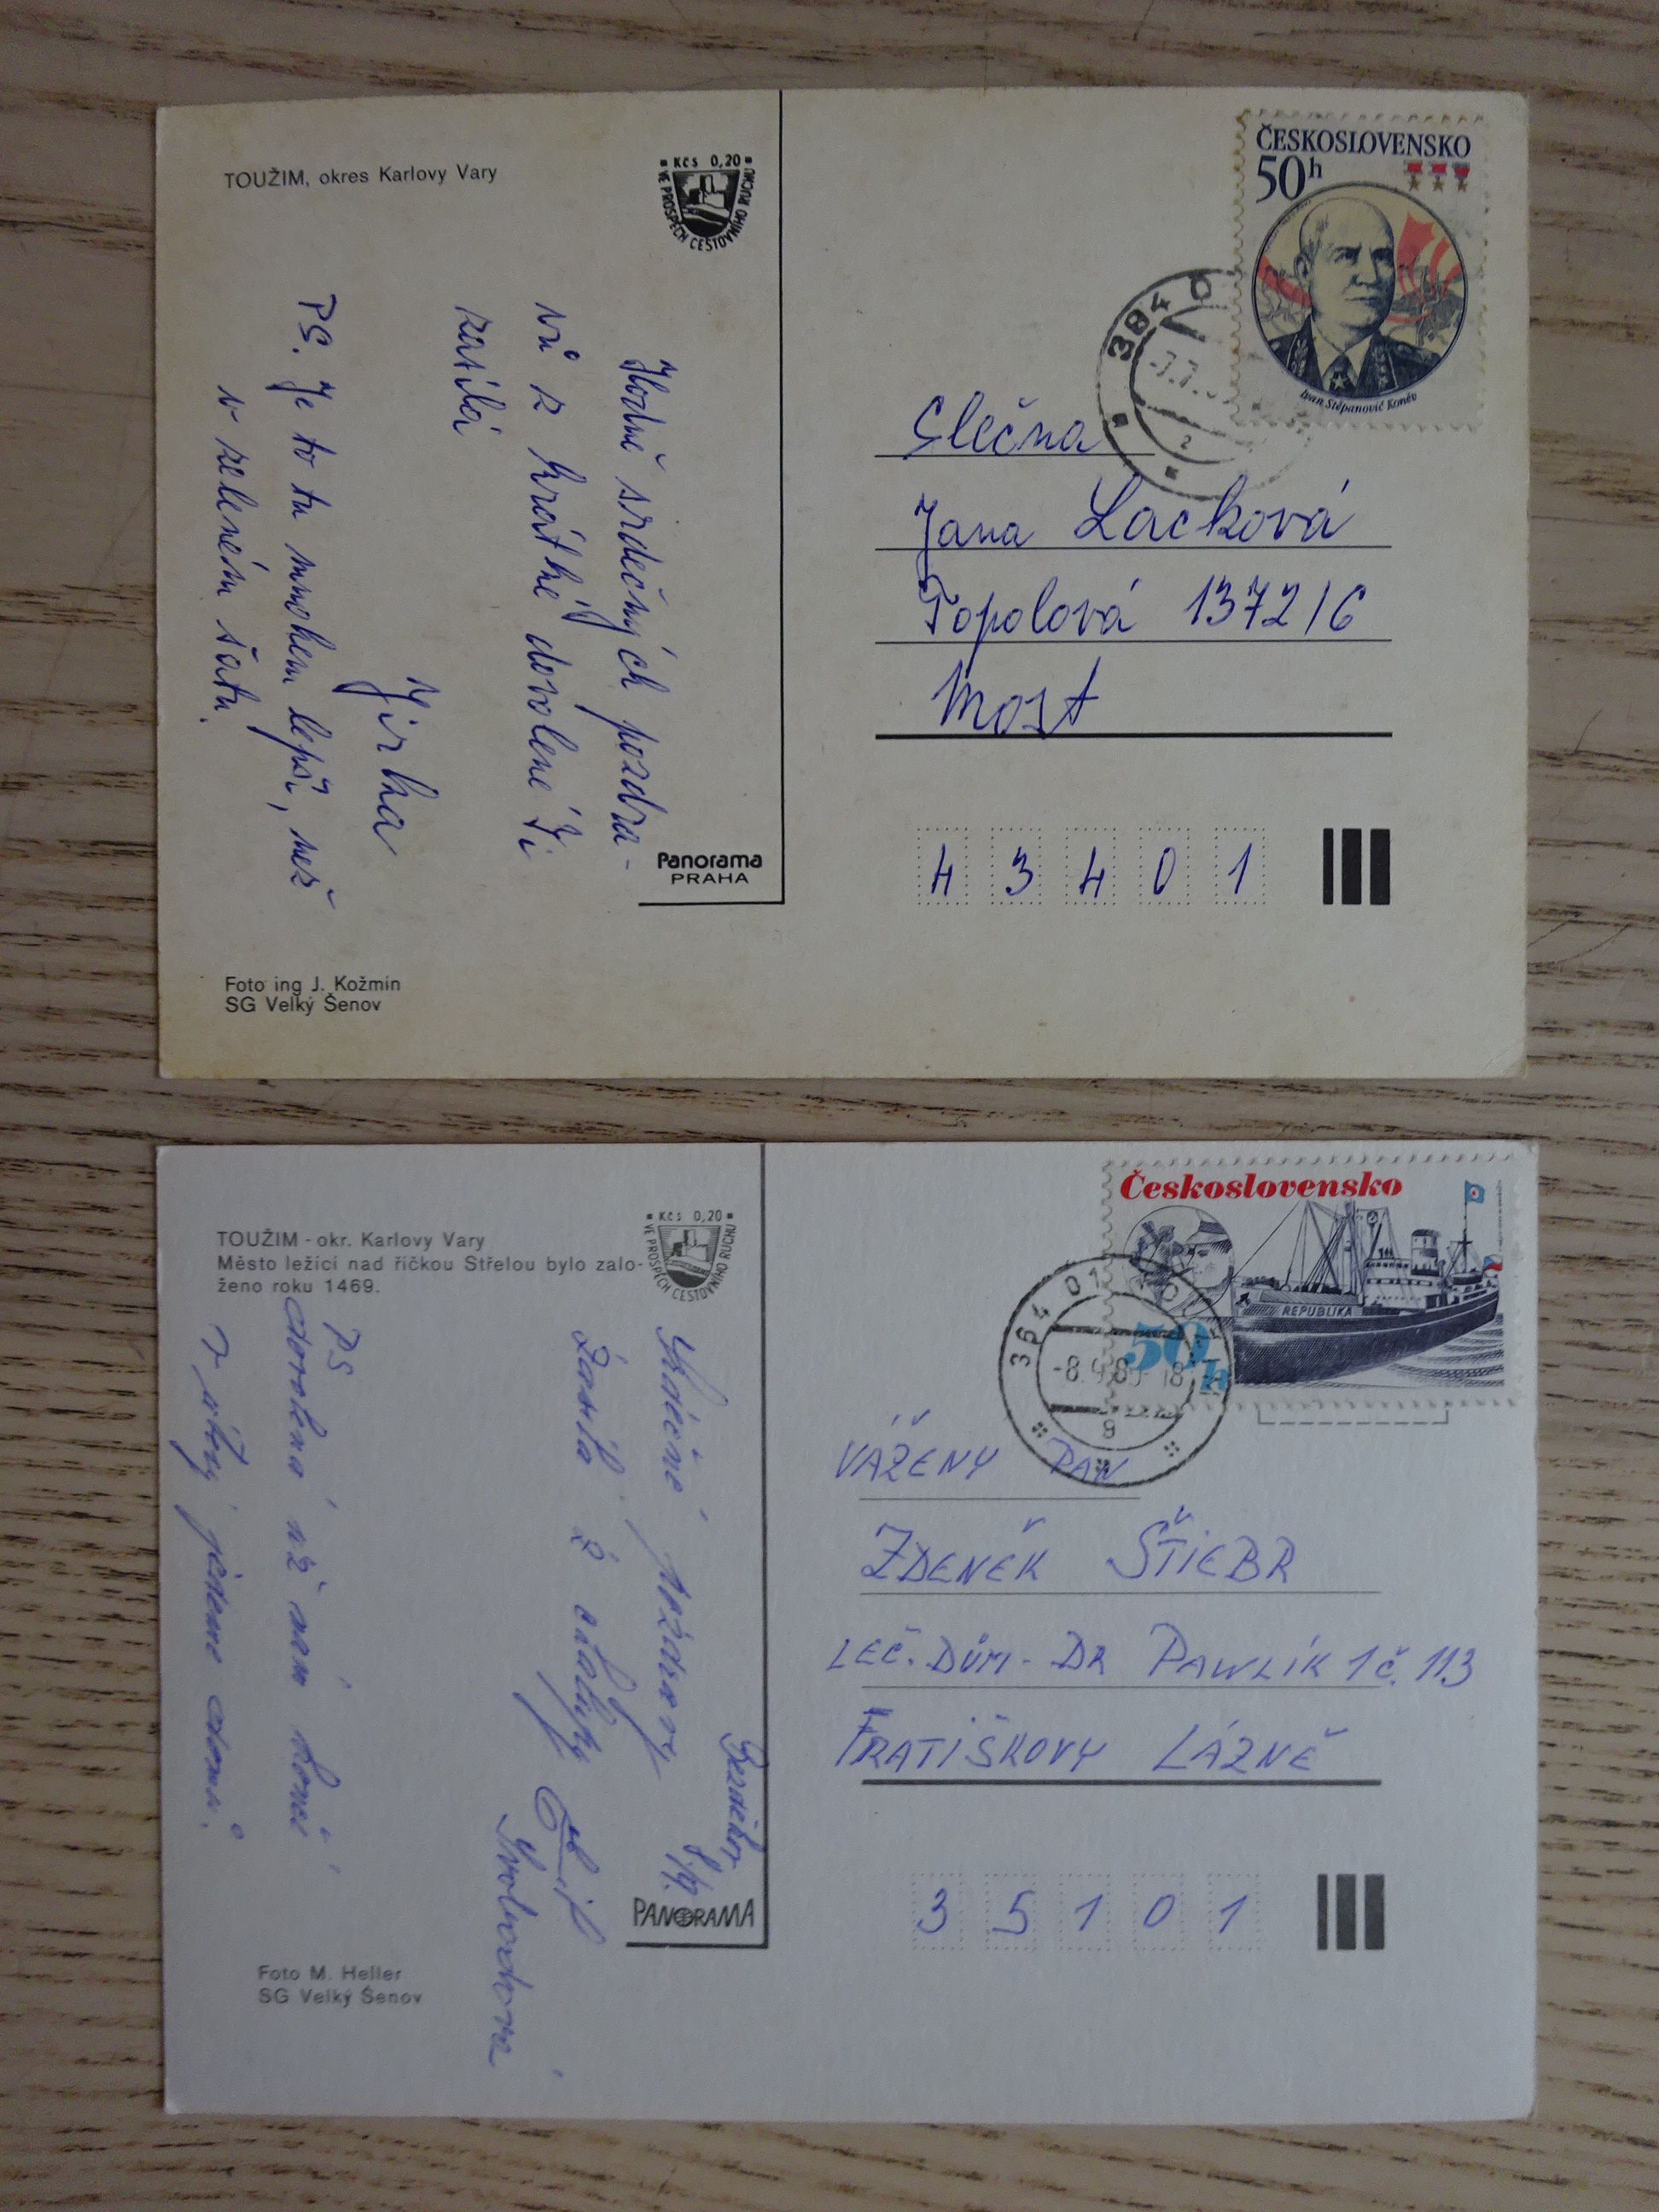 TOUŽIM, okres Karlovy Vary
Kčs 0,20
VE PROSPĚCH CESTOVNÍHO RUCHU
Hodně srdečných pozdra-
vů z krátké dovolené Ti
zasílá
Jirka
PS. Je to tu mnohem lepší, než
v zeleném šatu.
Panorama
PRAHA
Foto ing J. Kožmín
SG Velký Šenov
ČESKOSLOVENSKO
50h
Ivan Stěpanovič Koněv
384 0
7.7.
2
Slečna
Jana Lacková
Topolová 1372/6
Most
43401
TOUŽIM - okr. Karlovy Vary
Město ležící nad říčkou Střelou bylo zalo-
ženo roku 1469.
Kčs 0,20
VE PROSPĚCH CESTOVNÍHO RUCHU
Bezděkov
8/9.
Srdečné pozdravy
Zasílá z chalupy
Svobodová
PS
dovolená už nám končí
v úterý jedeme domů.
PANORAMA
Foto M. Heller
SG Velký Šenov
Československo
REPUBLIKA
50h
364 01
-8.9.8 18
g
VÁŽENY PAN
ZDENĚK ŠTIEBR
LEČ. DŮM - DR PAWLÍK 1 č. 113
FRATIŠKOVY LÁZNĚ
35101